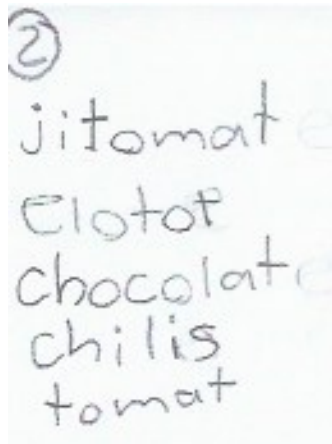 2
jitomat
elotot
chocolat
chilis
tomat